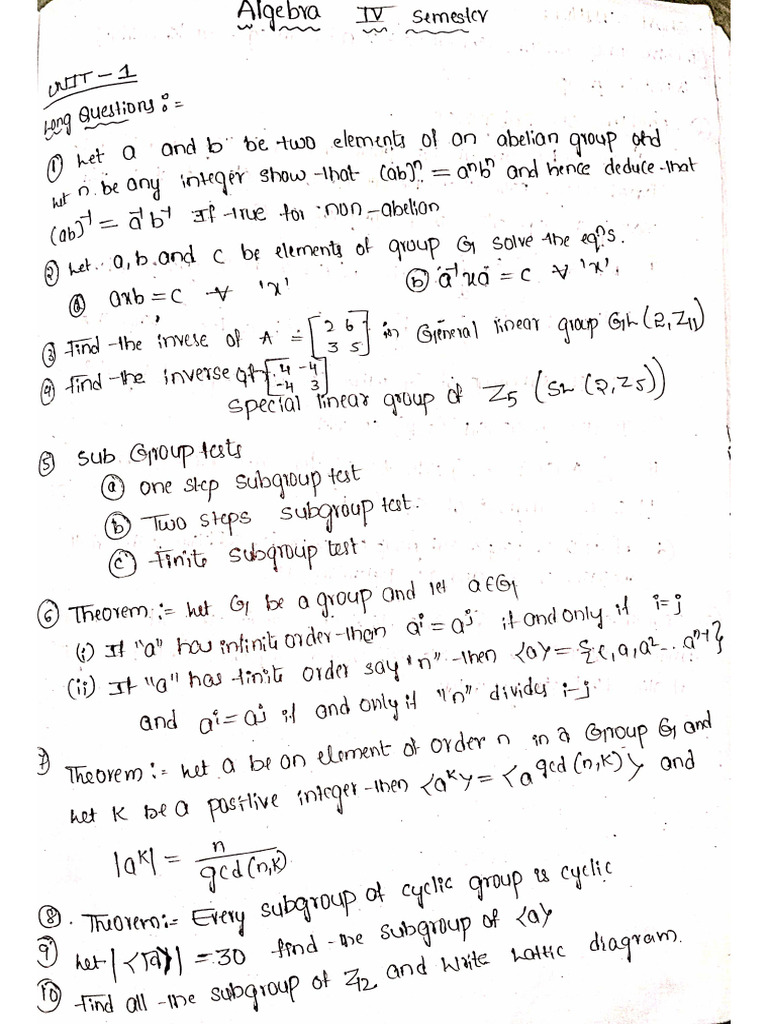 Algebra IV Semester
UNIT - 1
Long Questions :=
① Let a and b be two elements of an abelian group and
let n be any integer show that (ab)ⁿ = aⁿbⁿ and hence deduce that
(ab)⁻¹ = a⁻¹b⁻¹ If true for non-abelian
② Let a, b and c be elements of group G solve the eqⁿs.
ⓐ axb = c ∀ 'x' ⓑ a⁻¹xa = c ∀ 'x'.
③ Find the invese of A = [2 6
3 5] in General linear group GL(2, Z₁₁)
④ Find the inverse of [4 -4
-4 3]
special linear group of Z₅ (SL(2, Z₅))
⑤ Sub Group tests
ⓐ one step subgroup test
ⓑ Two steps subgroup test.
ⓒ Finite subgroup test.
⑥ Theorem := Let G be a group and let a∈G
(i) If "a" has infinite order then aⁱ = aʲ if and only if i=j
(ii) If "a" has finite order say "n" then <a> = {e, a, a² .. aⁿ⁻¹}
and aⁱ = aʲ if and only if "n" divides i-j
7) Theorem := Let a be an element of order n in a Group G and
Let K be a positive integer then <aᵏ> = <a^gcd(n,k)> and
|aᵏ| = n / gcd(n,k)
⑧. Theorem := Every subgroup of cyclic group is cyclic
⑨ Let |<a>| = 30 find the subgroup of <a>
⑩ Find all the subgroup of Z₁₂ and write Lattic diagram.